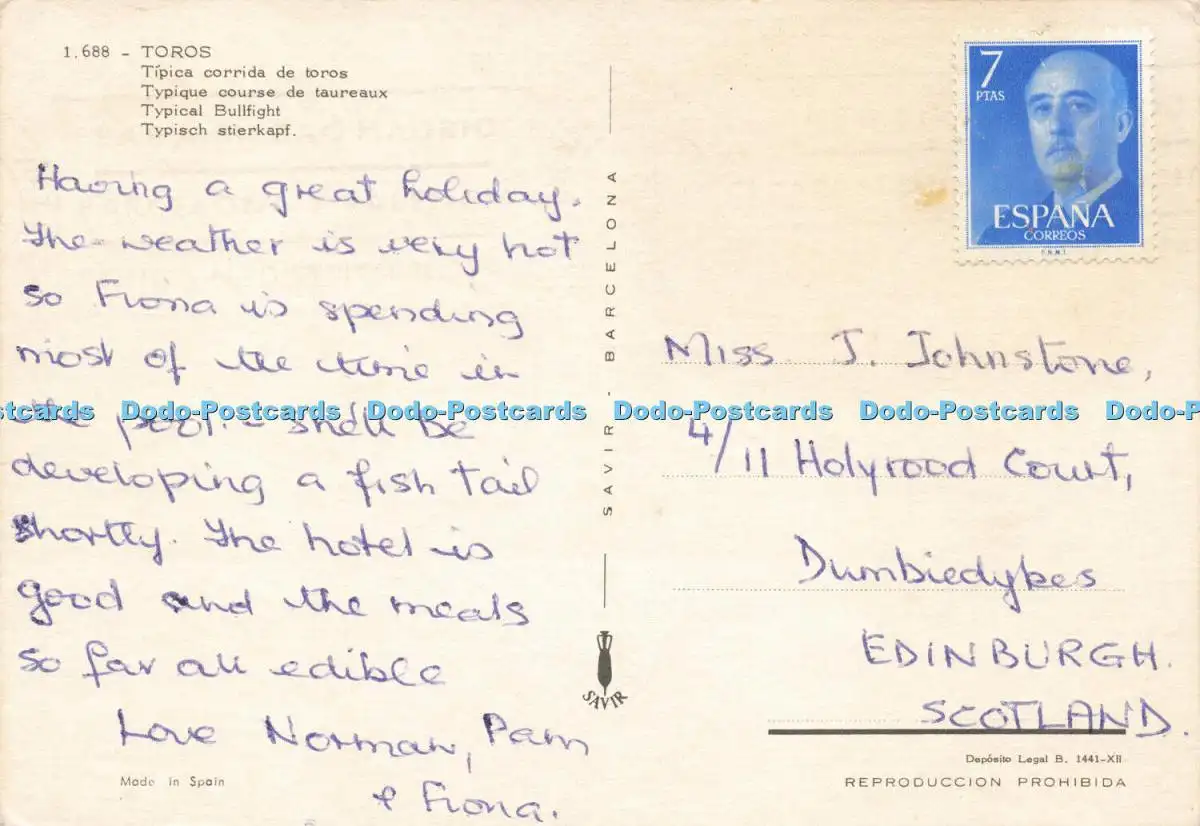 1.688 - TOROS
Típica corrida de toros
Typique course de taureaux
Typical Bullfight
Typisch stierkapf.
Having a great holiday.
The weather is very hot
so Fiona is spending
most of the time in
the pool - she'll be
developing a fish tail
shortly. The hotel is
good and the meals
so far all edible
Love Norman, Pam
& Fiona.
Made in Spain
SAVIR - BARCELONA
SAVIR
7
PTAS
ESPAÑA
CORREOS
F.N.M.T.
Miss J. Johnstone,
4/11 Holyrood Court,
Dumbiedykes
EDINBURGH.
SCOTLAND.
Depósito Legal B. 1441-XII
REPRODUCCION PROHIBIDA
stcards Dodo-Postcards Dodo-Postcards Dodo-Postcards Dodo-Postcards Dodo-Po